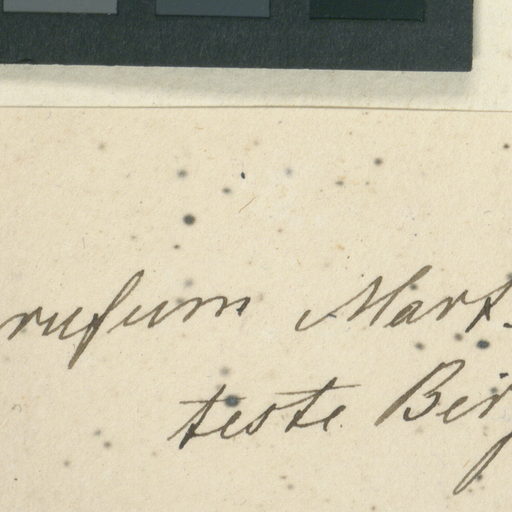 rufum Mart.
teste Berg